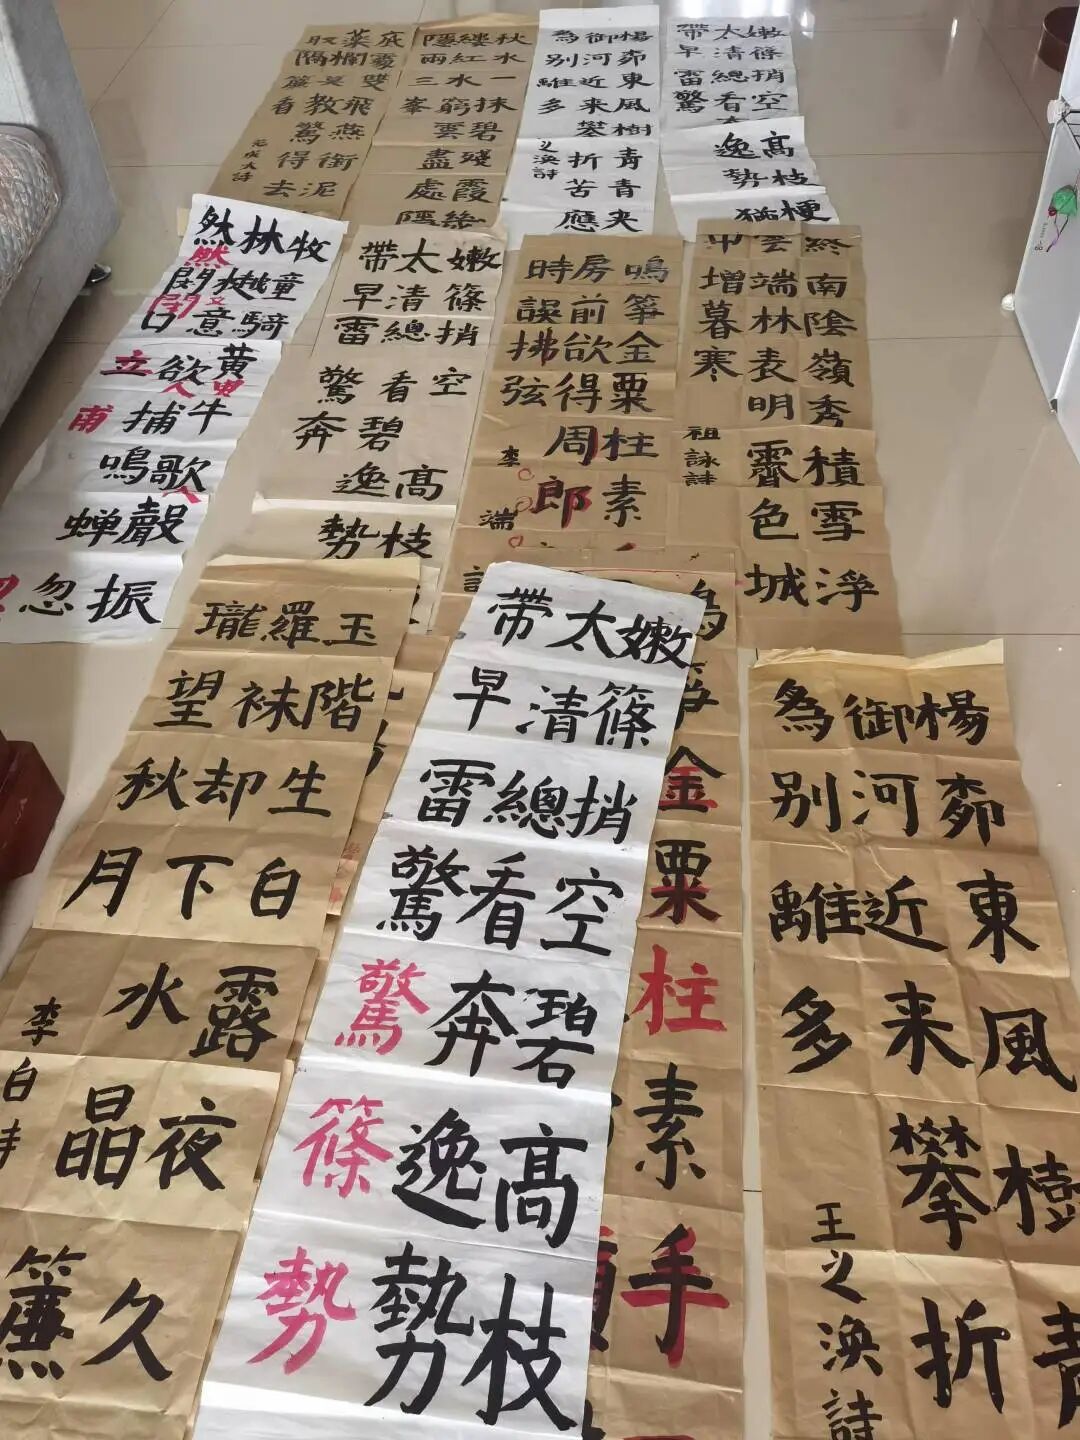 底處雙飛燕銜泥
藥欄莫教驚得去
取隔簾看
范成大詩
秋水一抹碧殘霞幾
縷紅水窮雲盡處隱
隱兩三峯
楊桺東風樹青青夾
御河近来攀折苦應
為別離多
之渙詩
嫩篠捎空
高枝梗
太清總看
逸勢猶
帶早雷驚
牧童騎黃牛歌聲振
林樾意欲捕鳴蟬忽
然閉口立
然
嫩篠捎空碧高枝
太清總看奔逸勢
帶早雷驚
鳴箏金粟柱素
房前欲得周郎
時誤拂弦
李端詩
終南陰嶺秀積雪浮
雲端林表明霽色城
中增暮寒
祖詠詩
玉階生白露夜久
羅袜却下水晶簾
瓏望秋月
李白詩
嫩篠捎空碧高枝
太清總看奔逸勢
帶早雷驚
驚篠勢
金粟柱素手
楊桺東風樹青
御河近来攀折
為別離多
王之渙詩